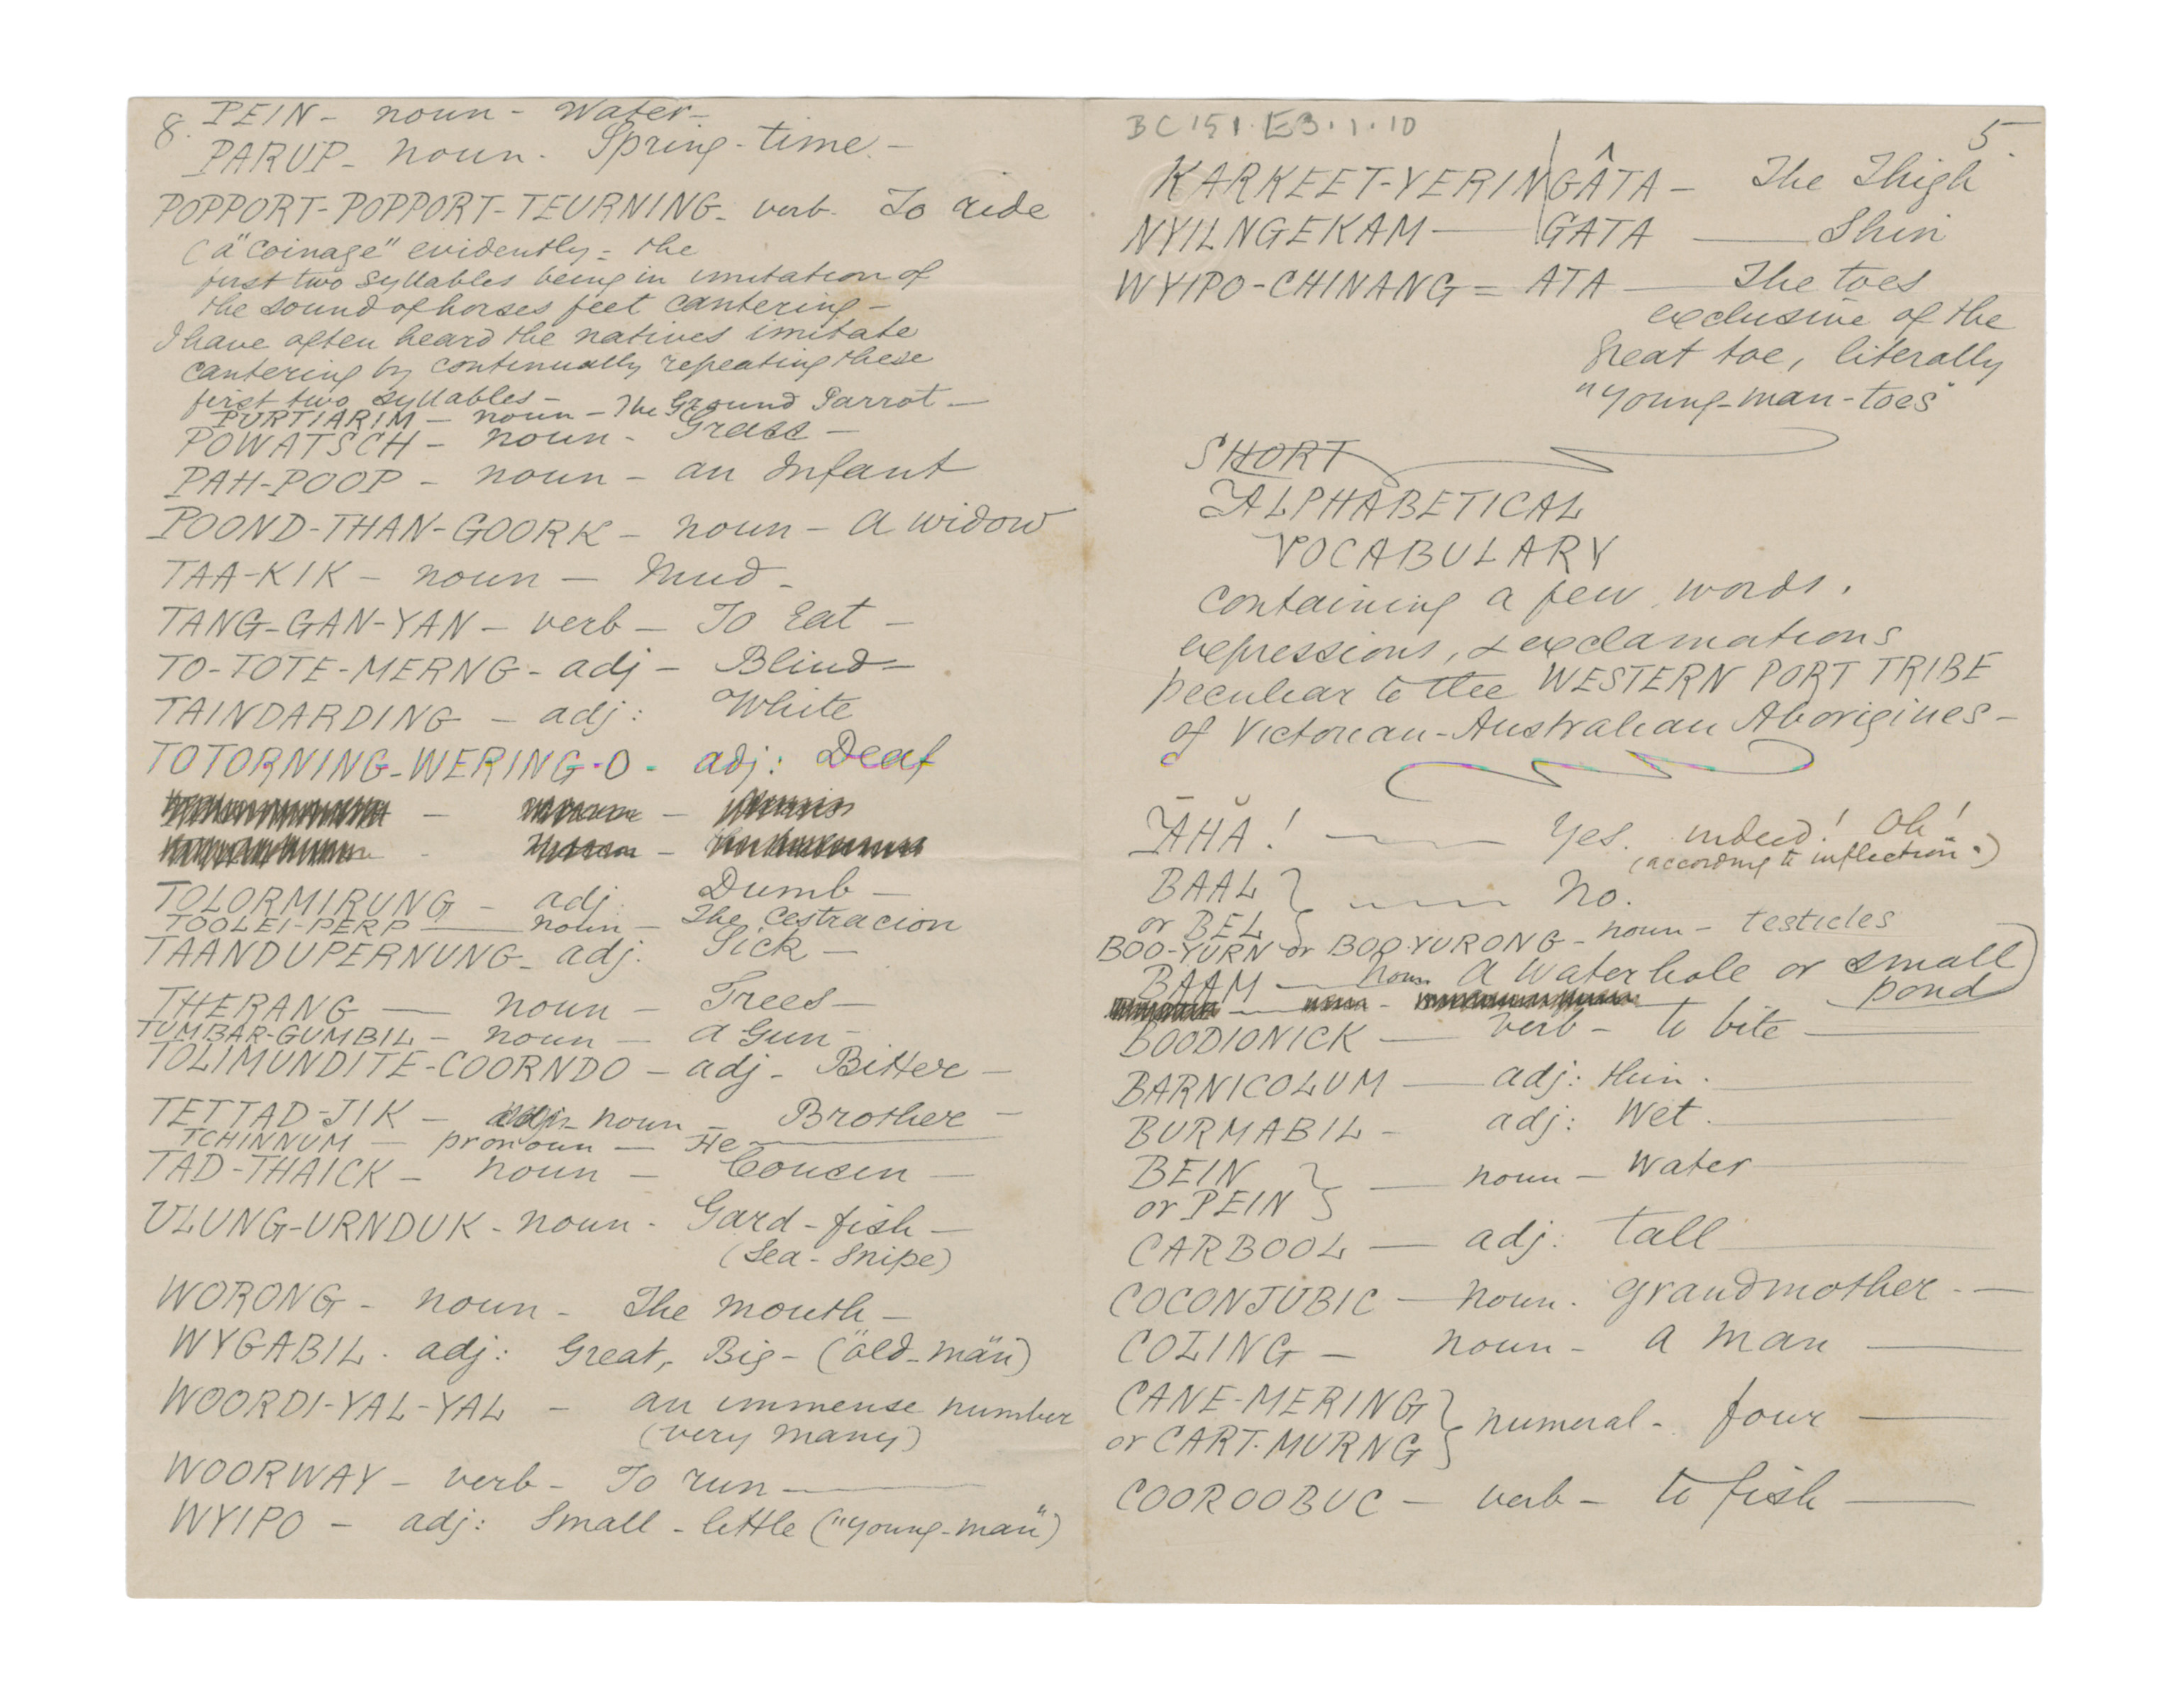 8. PEIN - noun - Water -
PARUP - noun - Spring-time -
POPPORT-POPPORT-TEURNING - verb - To ride
(a "coinage" evidently = the
first two syllables being in imitation of
the sound of horses feet cantering -
I have often heard the natives imitate
cantering by continually repeating these
first two syllables -
PURTIARIM - noun - The Ground Parrot -
POWATSCH - noun - Grass -
PAH-POOP - noun - an Infant
POOND-THAN-GOORK - noun - a widow
TAA-KIK - noun - Mud -
TANG-GAN-YAN - verb - To Eat -
TO-TOTE-MERNG - adj - Blind -
TAINDARDING - adj: White
TOTORNING-WERING-O - adj: Deaf
TOLORMIRUNG - adj. Dumb -
TOOLEI-PERP - noun - The Cestracion
TAANDUPERNUNG - adj. Sick -
THERANG - noun - Trees -
TUMBAR-GUMBIL - noun - a Gun -
TOLIMUNDITE-COORNDO - adj - Bitter -
TETTAD-JIK - noun - Brother -
TCHINNUM - pronoun - He
TAD-THAICK - noun - Cousin -
ULUNG-URNDUK - noun - Gard-fish -
(Sea-Snipe)
WORONG - noun - The mouth -
WYGABIL - adj: Great, Big - ("old-man")
WOORDI-YAL-YAL - an immense number
(very many)
WOORWAY - verb - To run -
WYIPO - adj: Small - little ("young-man")
BC 151. E3.1.10
5.
KARKEET-YERINGÂTA - The Thigh
NYILNGEKAM - GATA - Shin
WYIPO-CHINANG = ATA - The toes
exclusive of the
Great toe, literally
"young-man-toes"
SHORT
ALPHABETICAL
VOCABULARY
containing a few words,
expressions, & exclamations
peculiar to the WESTERN PORT TRIBE
of Victorian-Australian Aborigines -
ĀHĂ! - Yes. indeed! Oh!
(according to inflection.)
BAAL
or BEL } - No.
BOO-YURN or BOO-YURONG - noun - testicles
BAAM - noun a Waterhole or small
pond
BOODIONICK - verb - to bite -
BARNICOLUM - adj: thin.
BURMABIL - adj: Wet.
BEIN
or PEIN } - noun - Water
CARBOOL - adj: tall
COCONJUBIC - noun. grandmother. -
COLING - noun - a man
CANE-MERING
or CART-MURNG } numeral - four -
COOROOBUC - verb - to fish -